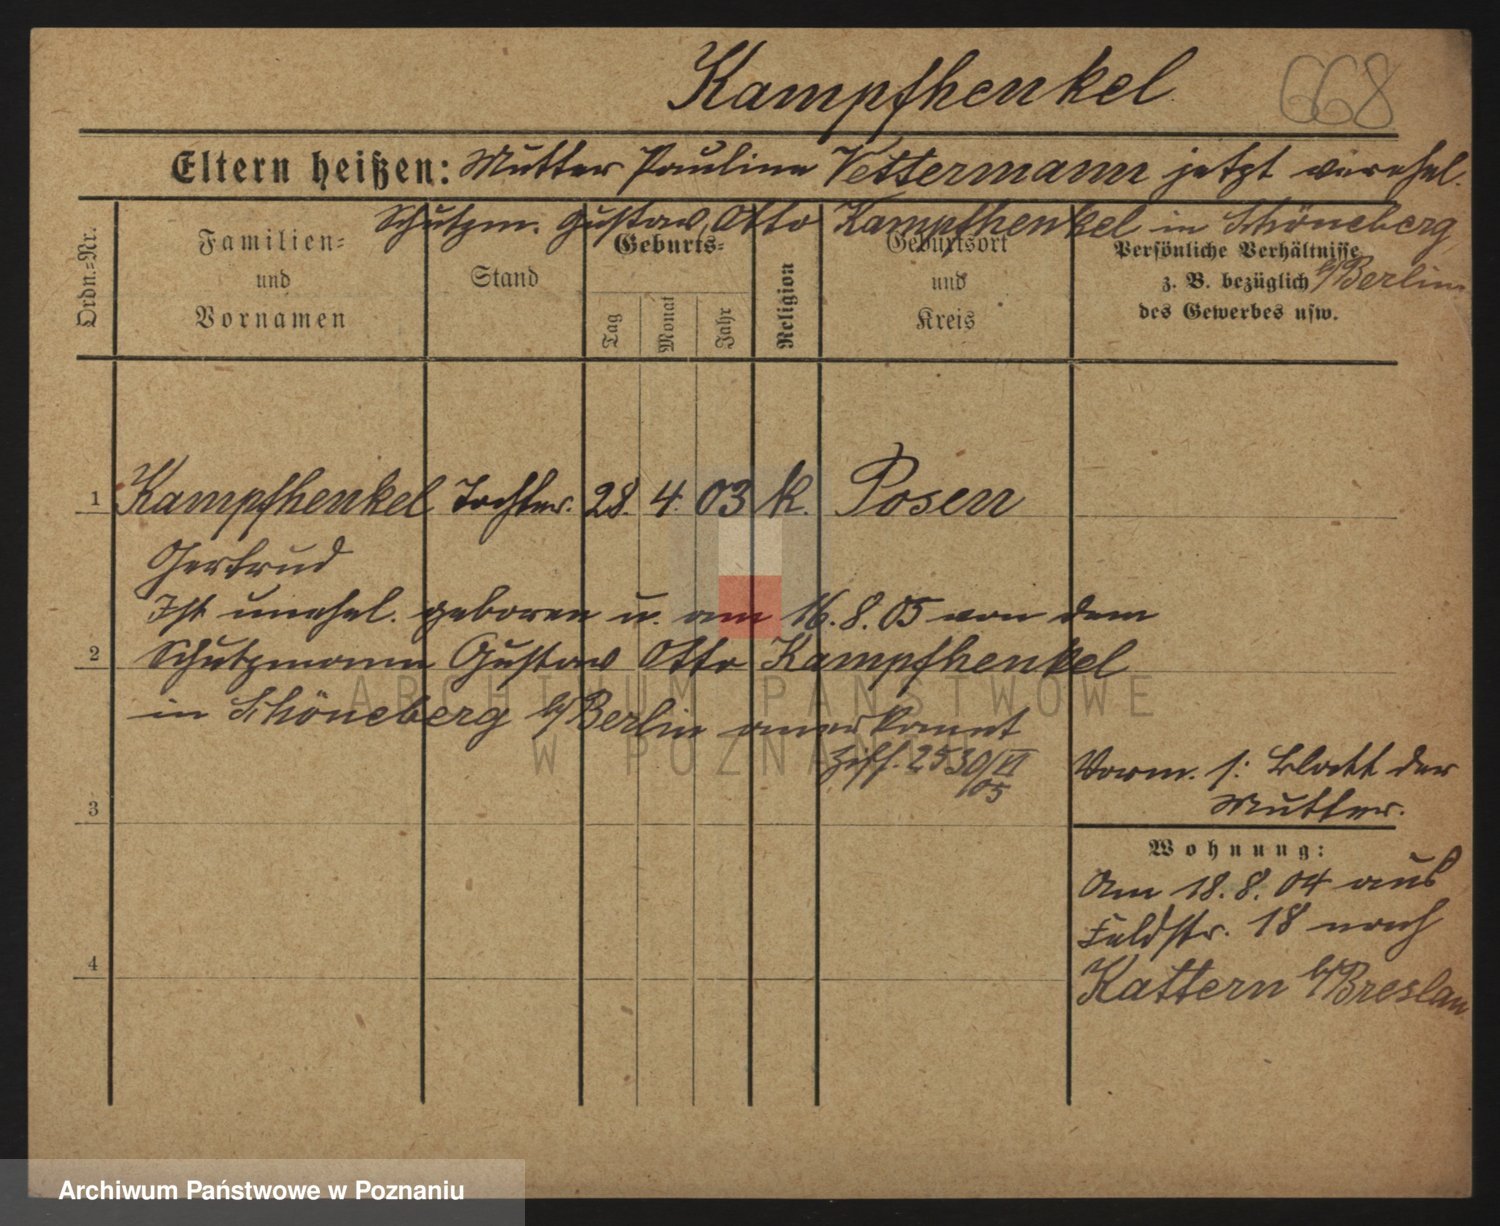 Kampfhenkel 668
Eltern heißen: Mutter Pauline Vettermann jetzt verehel.
Schutzm. Gustav Otto Kampfhenkel in Schöneberg
b/Berlin
Ordn.-Nr.
Familien-
und
Vornamen
Stand
Geburts-
Tag
Monat
Jahr
Religion
Geburtsort
und
Kreis
Persönliche Verhältnisse
z. B. bezüglich
des Gewerbes usw.
1 Kampfhenkel Tochter. 28. 4. 03 k. Posen
Gertrud
Ist unehel. geboren u. am 16.8.05 von dem
2 Schutzmann Gustav Otto Kampfhenkel
in Schöneberg b/Berlin anerkannt
Ziff. 2530/VI
05
3
4
Vorm. s: Blatt der
Mutter.
Wohnung:
Am 18.8.04 aus
Feldstr. 18 nach
Kattern b/Breslau
ARCHIWUM PAŃSTWOWE
W POZNANIU
Archiwum Państwowe w Poznaniu